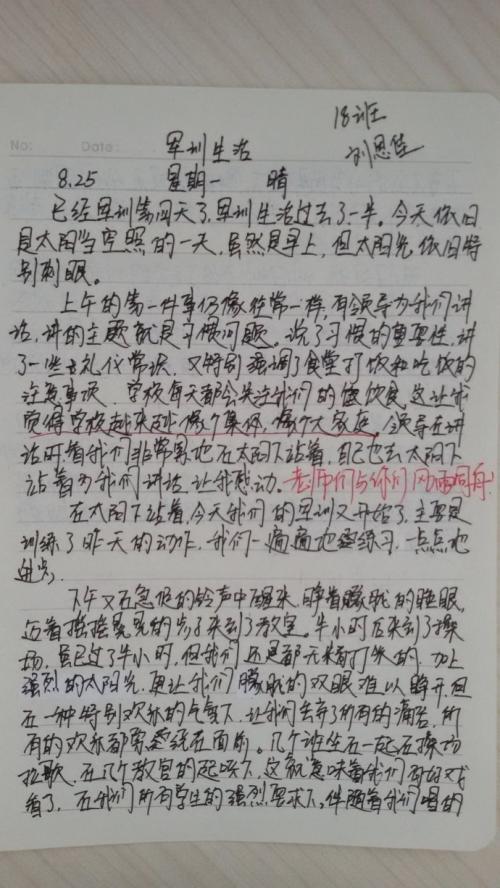 No:
Date:
18班
刘恩佳
军训生活
8.25 星期一 晴
已经军训第四天了,军训生活过去了一半。今天依旧
是太阳当空照的一天,虽然是早上,但太阳光依旧特
别刺眼。
上午的第一件事仍像往常一样,有领导为我们讲
话,讲的主题就是习惯问题。说了习惯的重要性,讲
了一些礼仪常识,又特别强调了食堂打饭和吃饭的
注意事项,学校每天都会关注我们的饮食,这让我
觉得学校越来越像个集体,像个大家庭。领导在讲
话时看我们非常累地在太阳下站着,自己也去太阳下
站着为我们讲话,让我感动。老师们与你们风雨同舟!
在太阳下站着,今天我们的军训又开始了,主要是
训练了昨天的动作,我们一遍遍地练习,一点点地
进步。
下午又在急促的铃声中醒来,睁着朦胧的睡眼,
迈着摇摇晃晃的步子来到了教室。半小时后来到了操
场,虽已过了半小时,但我们还是都无精打采的,加上
强烈的太阳光,更让我们朦胧的双眼难以睁开,但
在一种特别欢乐的气氛下,让我们丢弃了所有的痛苦,所
有的欢乐都在面前。几个班坐在一起在操场
拉歌,在几个教官的起哄下,这就意味着我们有好戏
看了,在我们所有学生的强烈要求下,伴随着我们唱的